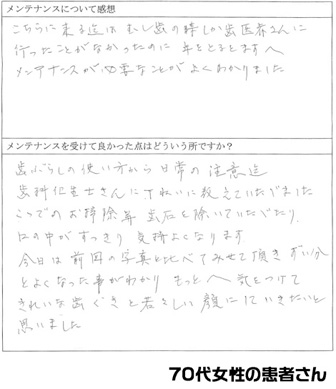 メンテナンスについて感想
こちらに来る迄はむし歯の時しか歯医者さんに
行ったことがなかったのに 年をとるとますます
メンテナンスが必要なことがよくわかりました
メンテナンスを受けて良かった点はどういう所ですか?
歯ぶらしの使い方から日常の注意迄
歯科衛生士さんに丁ねいに教えていただきました
ここでのお掃除 歯石を除いていただたり、
口の中がすっきり 気持よくなります
今日は前回の写真と比べてみせて頂き ずい分
とよくなった事がわかり もっと 気をつけて
きれいな歯ぐきと若々しい顔にしていきたいと
思いました
70代女性の患者さん